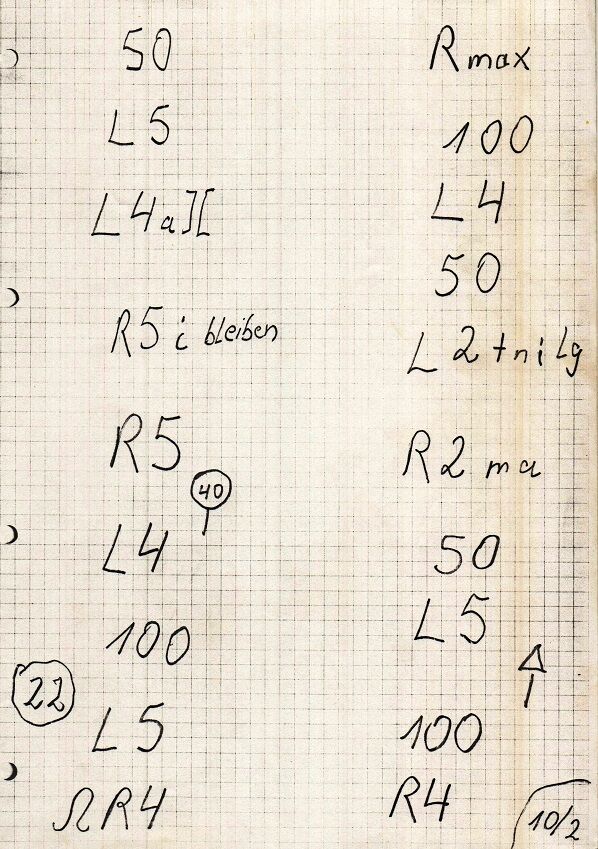 50
L5
L4a][
R5 i bleiben
R5
40
L4
100
22
L5
ΩR4
Rmax
100
L4
50
L2+ni Lg
R2 ma
50
L5
100
R4
10/2